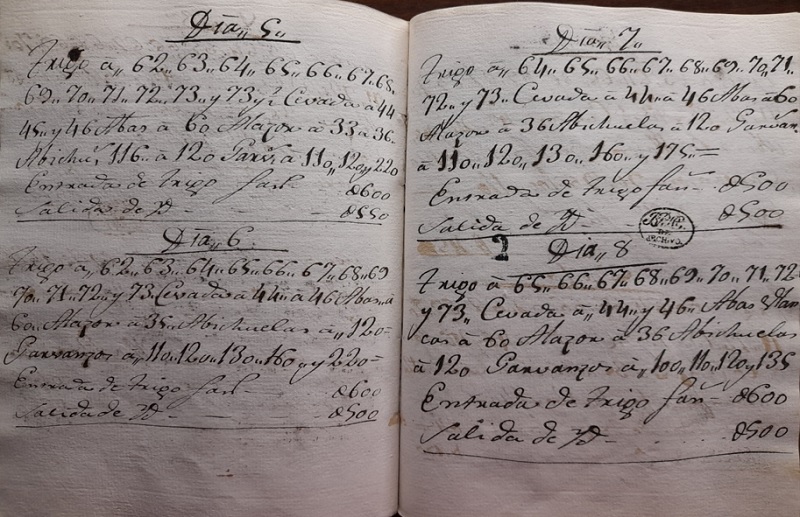 Dia,, 5,,
Trigo a,, 62,, 63,, 64,, 65,, 66,, 67,, 68,,
69,, 70,, 71,, 72,, 73,, y 73 y 2 Cevada a 44
45,, y 46 Abas à 60 Alazor à 33 à 36,,
Abichuˢ 116,, à 120 Garvˢ à 110,, 120 y 220
Entrada de trigo fanˢ 8600
Salida de Yd 8550
Dia,, 6
Trigo à,, 62,, 63,, 64,, 65,, 66,, 67,, 68,, 69
70,, 71,, 72,, y 73 Cevada à 44,, à 46 Abas a
60,, Alazor à 35,, Abichuelas à,, 120
Garvanzos à,, 110,, 120,, 130,, 160,, y 220,, =
Entrada de trigo fanˢ 8600
Salida de Yd 8500
Dia,, 7,,
Trigo à,, 64,, 65,, 66,, 67,, 68,, 69,, 70,, 71,,
72,, y 73,, Cevada à 44,, à 46 Abas à 60
Alazor à 36 Abichuelas à 120 Garvanˢ
à 110,, 120,, 130,, 160,, y 175,, =
Entrada de trigo fanˢ 8500
Salida de Yd 8500
2 Dia,, 8
Trigo à 65,, 66,, 67,, 68,, 69,, 70,, 71,, 72
y 73,, Cevada à,, 44,, y 46,, Abas Man
cas à 60 Alazor à 36 Abichuelas
à 120 Garvanzos à,, 100,, 110,, 120 y 135
Entrada de trigo fanˢ 8600
Salida de Yd 8500